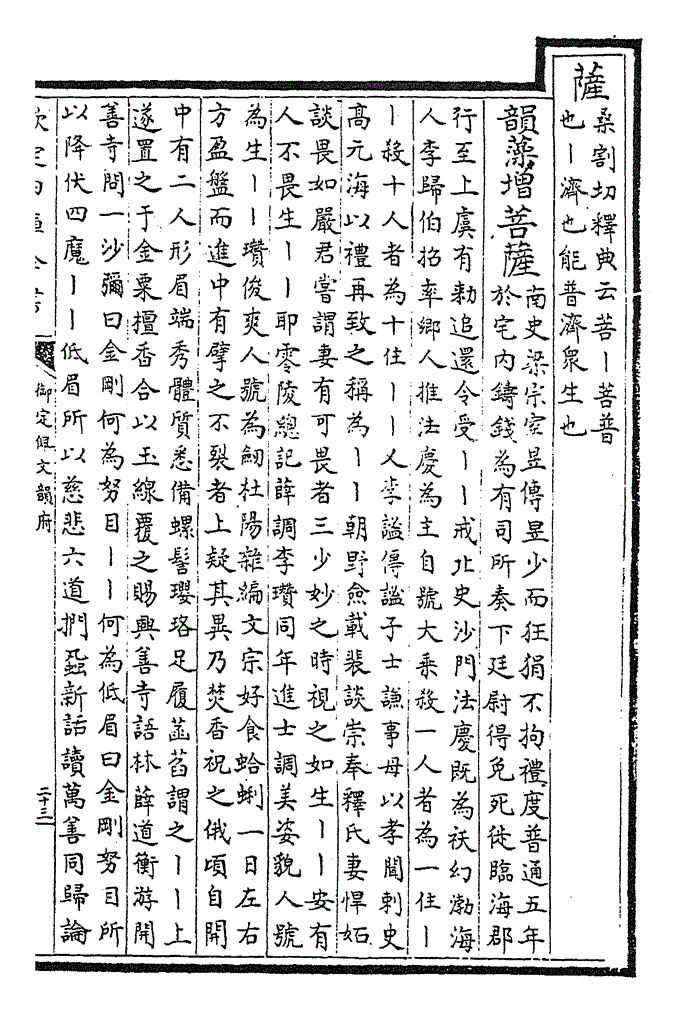 薩
桑割切釋典云菩丨菩普
也丨濟也能普濟衆生也
韻藻增菩薩
南史梁宗室昱傳昱少而狂狷不拘禮度普通五年
於宅内鑄錢為有司所奏下廷尉得免死徙臨海郡
行至上虞有勅追還令受丨丨戒北史沙門法慶既為祅幻渤海
人李歸伯招率鄉人推法慶為主自號大乘殺一人者為一住丨
丨殺十人者為十住丨丨又李謐傳謐子士謙事母以孝聞刺史
髙元海以禮再致之稱為丨丨朝野僉載裴談崇奉釋氏妻悍妬
談畏如嚴君嘗謂妻有可畏者三少妙之時視之如生丨丨安有
人不畏生丨丨耶零陵總記薛調李瓚同年進士調美姿貌人號
為生丨丨瓚俊爽人號為劒杜陽雜編文宗好食蛤蜊一日左右
方盈盤而進中有擘之不裂者上疑其異乃焚香祝之俄頃自開
中有二人形眉端秀體質悉備螺髻瓔珞足履菡萏謂之丨丨上
遂置之于金粟檀香合以玉線覆之賜興善寺語林薛道衡游開
善寺問一沙彌曰金剛何為努目丨丨何為低眉曰金剛努目所
以降伏四魔丨丨低眉所以慈悲六道捫蝨新話讀萬善同歸論
欽定四庫全書
御定佩文韻府
二十三